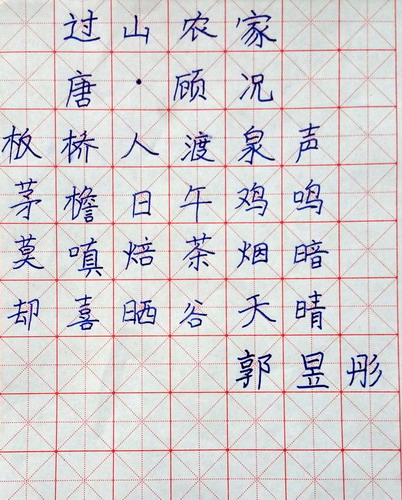 过山农家
唐·顾况
板桥人渡泉声
茅檐日午鸡鸣
莫嗔焙茶烟暗
却喜晒谷天晴
郭昱彤